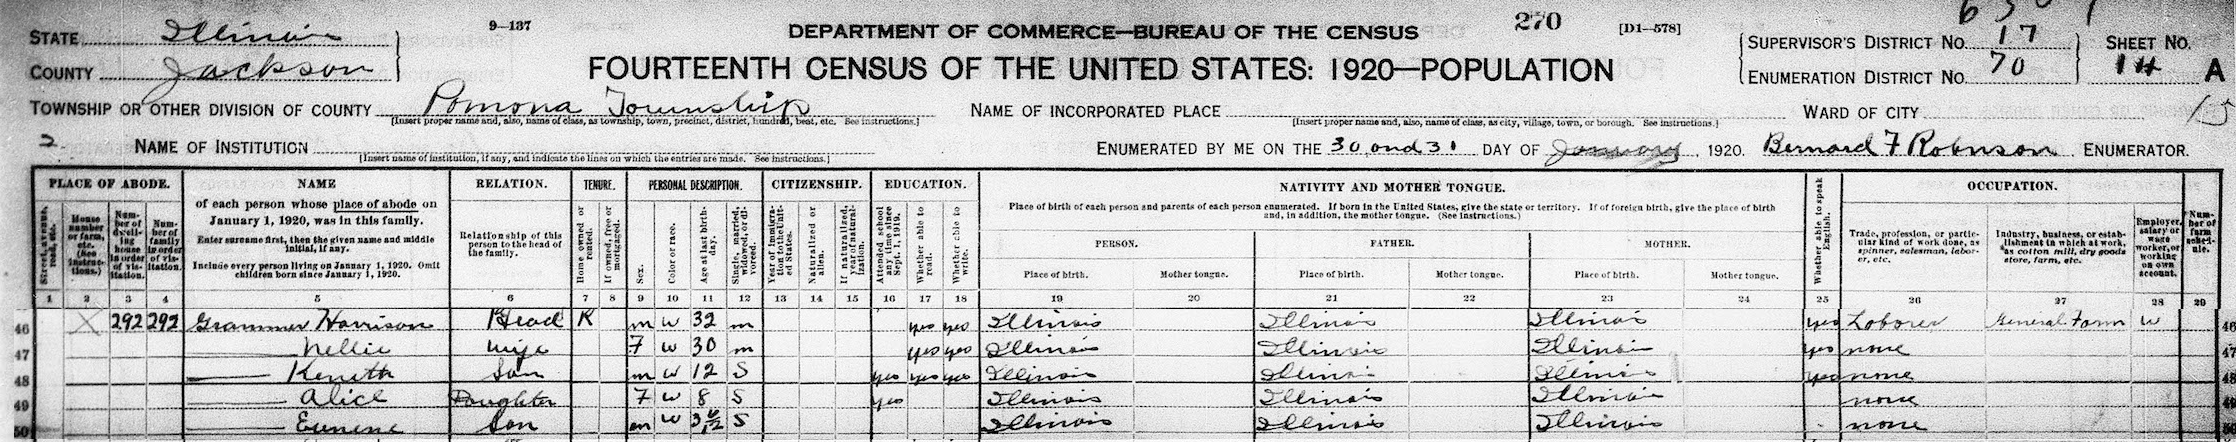 9—137
270
[D1—578]
6 3 0 1
DEPARTMENT OF COMMERCE—BUREAU OF THE CENSUS
STATE Illinois
COUNTY Jackson
FOURTEENTH CENSUS OF THE UNITED STATES: 1920—POPULATION
SUPERVISOR'S DISTRICT NO. 17
ENUMERATION DISTRICT NO. 70
SHEET NO.
14 A
TOWNSHIP OR OTHER DIVISION OF COUNTY Pomona Township
[Insert proper name and, also, name of class, as township, town, precinct, district, hundred, beat, etc. See instructions.]
NAME OF INCORPORATED PLACE
[Insert proper name and, also, name of class, as city, village, town, or borough. See instructions.]
WARD OF CITY
2
NAME OF INSTITUTION
[Insert name of institution, if any, and indicate the lines on which the entries are made. See instructions.]
ENUMERATED BY ME ON THE 30 and 31 DAY OF January, 1920. Bernard F Robinson, ENUMERATOR.
PLACE OF ABODE.
Street, avenue, road, etc.
House number or farm, etc. (See instructions.)
Number of dwelling house in order of visitation.
Number of family in order of visitation.
NAME
of each person whose place of abode on January 1, 1920, was in this family.
Enter surname first, then the given name and middle initial, if any.
Include every person living on January 1, 1920. Omit children born since January 1, 1920.
RELATION.
Relationship of this person to the head of the family.
TENURE.
Home owned or rented.
If owned, free or mortgaged.
PERSONAL DESCRIPTION.
Sex.
Color or race.
Age at last birthday.
Single, married, widowed, or divorced.
CITIZENSHIP.
Year of immigration to the United States.
Naturalized or alien.
If naturalized, year of naturalization.
EDUCATION.
Attended school any time since Sept. 1, 1919.
Whether able to read.
Whether able to write.
NATIVITY AND MOTHER TONGUE.
Place of birth of each person and parents of each person enumerated. If born in the United States, give the state or territory. If of foreign birth, give the place of birth and, in addition, the mother tongue. (See instructions.)
PERSON.
Place of birth.
Mother tongue.
FATHER.
Place of birth.
Mother tongue.
MOTHER.
Place of birth.
Mother tongue.
Whether able to speak English.
OCCUPATION.
Trade, profession, or particular kind of work done, as spinner, salesman, laborer, etc.
Industry, business, or establishment in which at work, as cotton mill, dry goods store, farm, etc.
Employer, salary or wage worker, or working on own account.
Number of farm schedule.
1 2 3 4 5 6 7 8 9 10 11 12 13 14 15 16 17 18 19 20 21 22 23 24 25 26 27 28 29
46 X 292 292 Grammer Harrison Head R m W 32 m yes yes Illinois Illinois Illinois yes Laborer General Farm W 46
47 —— Nellie Wife F W 30 m yes yes Illinois Illinois Illinois yes none 47
48 —— Keneth Son m W 12 S yes yes yes Illinois Illinois Illinois yes none 48
49 —— Alice Daughter F W 8 S yes Illinois Illinois Illinois none 49
50 —— Eunene Son m W 3 6/12 S Illinois Illinois Illinois none 50